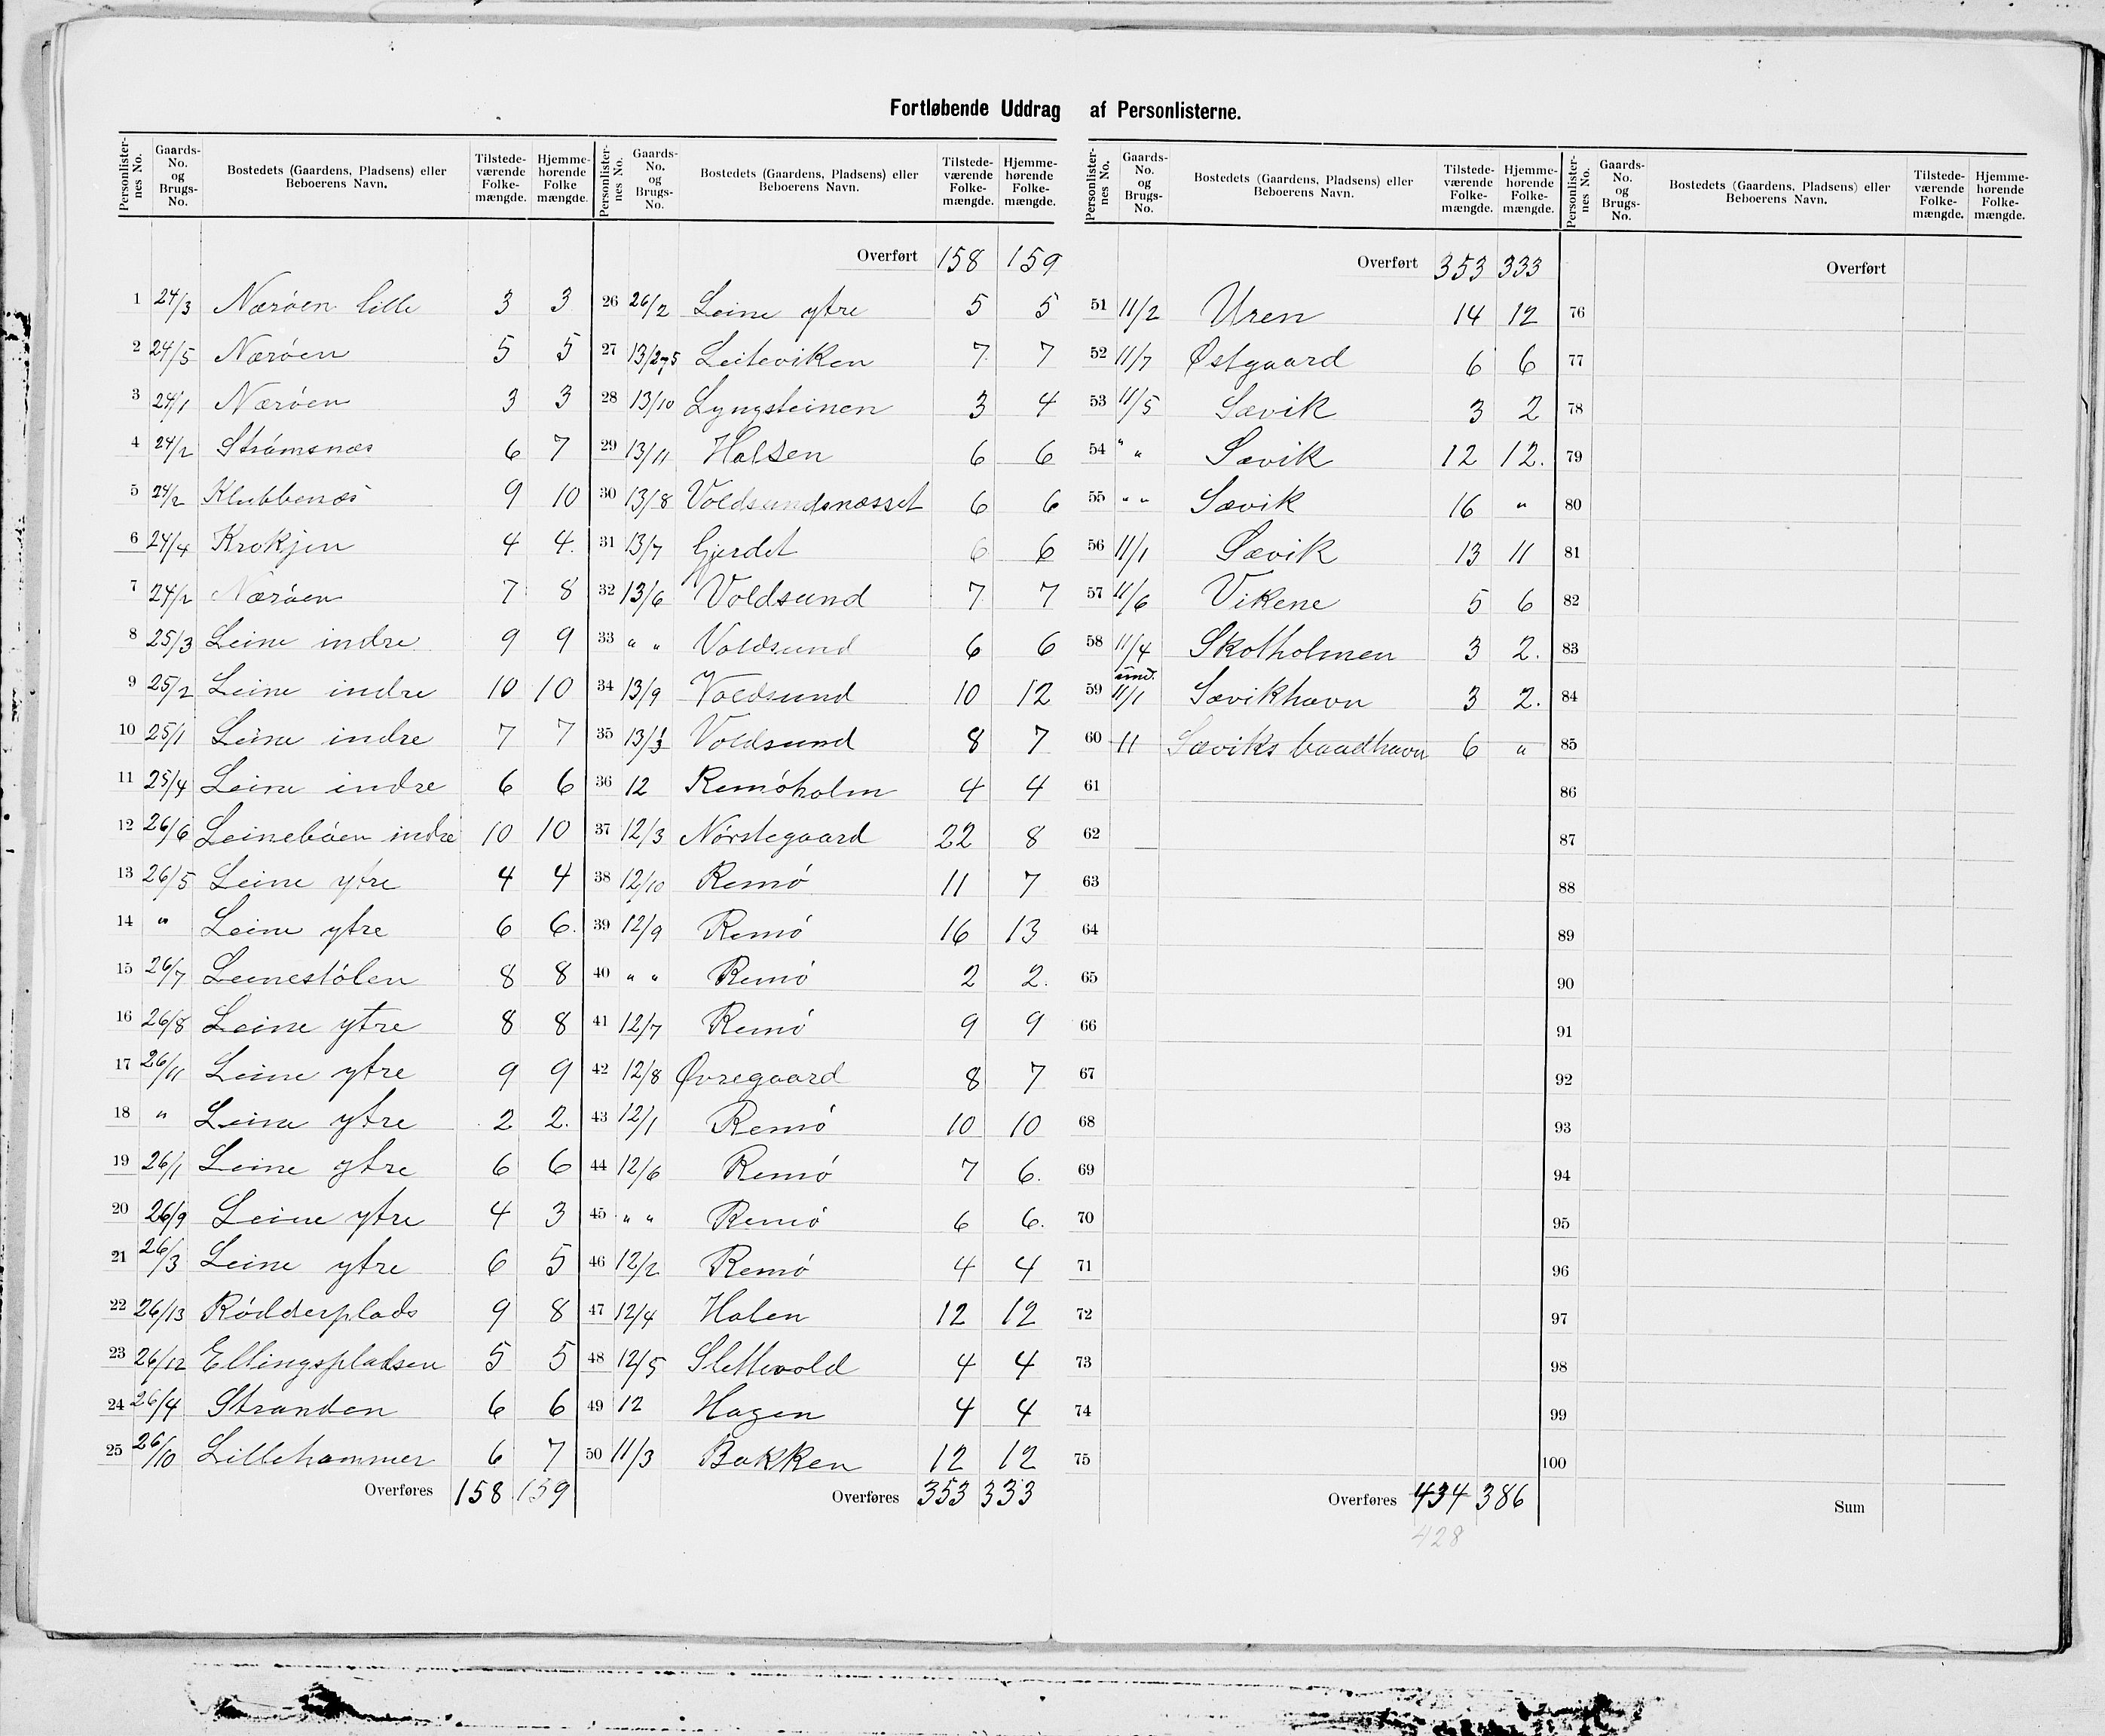 Fortløbende Uddrag af Personlisterne.
Personlisternes No. | Gaards-No. og Brugs-No. | Bostedets (Gaardens, Pladsens) eller Beboerens Navn. | Tilstedeværende Folkemængde. | Hjemmehørende Folkemængde.
1 24/3 Nærøen lille 3 3
2 24/5 Nærøen 5 5
3 24/1 Nærøen 3 3
4 24/2 Strømsnæs 6 7
5 24/2 Klubbenæs 9 10
6 24/4 Krokjen 4 4.
7 24/2 Nærøen 7 8
8 25/3 Leine indre 9 9
9 25/2 Leine indre 10 10
10 25/1 Leine indre 7 7
11 25/4 Leine indre 6 6
12 26/6 Leinebøen indre 10 10
13 26/5 Leine ytre 4 4
14 " Leine ytre 6 6.
15 26/7 Leinestølen 8 8
16 26/8 Leine ytre 8 8
17 26/11 Leine ytre 9 9
18 " Leine ytre 2 2.
19 26/1 Leine ytre 6 6
20 26/9 Leine ytre 4 3
21 26/3 Leine ytre 6 5
22 26/13 Rødderplads 9 8
23 26/12 Ellingspladsen 5 5
24 26/4 Stranden 6 6
25 26/10 Lillehammer 6 7
Overføres 158 159
Personlisternes No. | Gaards-No. og Brugs-No. | Bostedets (Gaardens, Pladsens) eller Beboerens Navn. | Tilstedeværende Folkemængde. | Hjemmehørende Folkemængde.
Overført 158 159
26 26/2 Leine ytre 5 5
27 13/2 og 5 Leiteviken 7 7
28 13/10 Lyngsteinen 3 4
29 13/11 Halsen 6 6
30 13/8 Voldsundsnæsset 6 6
31 13/7 Gjerdet 6 6
32 13/6 Voldsund 7 7
33 " " Voldsund 6 6
34 13/9 Voldsund 10 12
35 13/ Voldsund 8 7
36 12 Remøholm 4 4
37 12/3 Nørstegaard 22 8
38 12/10 Remø 11 7
39 12/9 Remø 16 13
40 " " Remø 2 2.
41 12/7 Remø 9 9
42 12/8 Øvregaard 8 7
43 12/1 Remø 10 10
44 12/6 Remø 7 6.
45 " " Remø 6 6.
46 12/2 Remø 4 4
47 12/4 Holen 12 12
48 12/5 Slettevold 4 4
49 12 Hagen 4 4
50 11/3 Bakken 12 12
Overføres 353 333
Personlisternes No. | Gaards-No. og Brugs-No. | Bostedets (Gaardens, Pladsens) eller Beboerens Navn. | Tilstedeværende Folkemængde. | Hjemmehørende Folkemængde.
Overført 353 333
51 11/2 Uren 14 12
52 11/7 Østgaard 6 6
53 11/5 Sævik 3 2
54 " " Sævik 12 12.
55 " " Sævik 16 "
56 11/1 Sævik 13 11
57 11/6 Vikene 5 6
58 11/4 Skotholmen 3 2.
59 und. 11/1 Sævikhavn 3 2.
60 11 Sæviks baadhavn 6 "
61
62
63
64
65
66
67
68
69
70
71
72
73
74
75
Overføres 434 386
428
Personlisternes No. | Gaards-No. og Brugs-No. | Bostedets (Gaardens, Pladsens) eller Beboerens Navn. | Tilstedeværende Folkemængde. | Hjemmehørende Folkemængde.
Overført
76
77
78
79
80
81
82
83
84
85
86
87
88
89
90
91
92
93
94
95
96
97
98
99
100
Sum